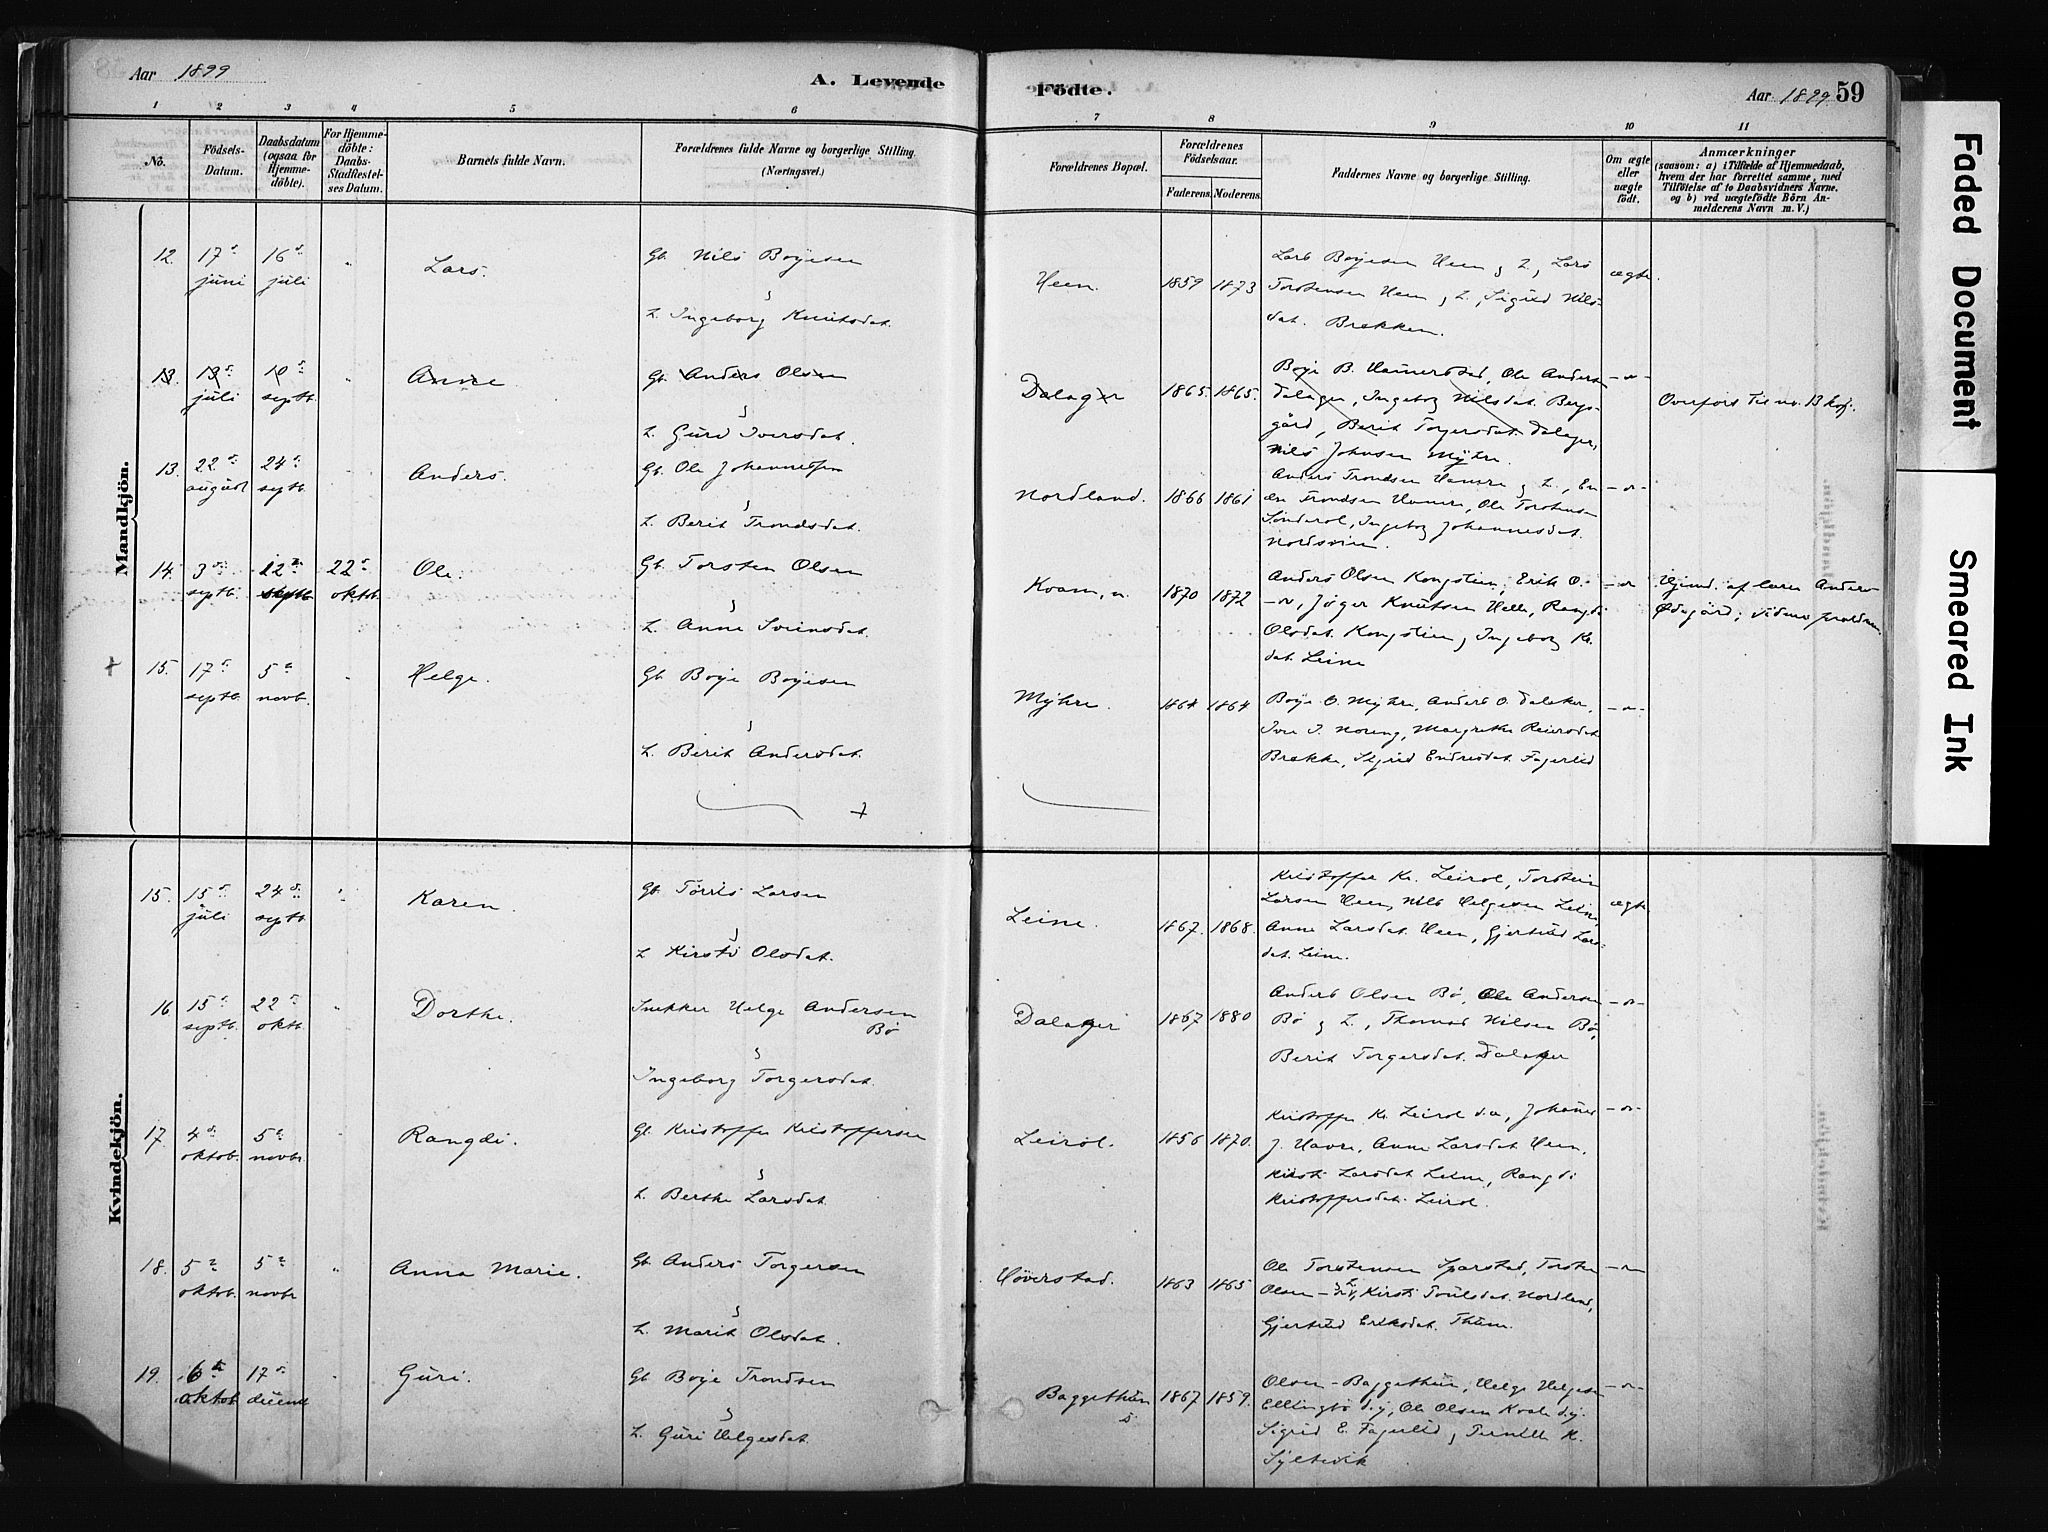 Aar 1899
A. Levende
Födte.
Aar 1899 59
1 2 3 4 5 6 7 8 9 10 11
No.
Födsels-Datum.
Daabsdatum (ogsaa for Hjemme-döbte).
For Hjemme-döbte: Daabs-Stadfæstel-ses Datum.
Barnets fulde Navn.
Forældrenes fulde Navne og borgerlige Stilling. (Næringsvei.)
Forældrenes Bopæl.
Forældrenes Födselsaar.
Faderens. Moderens.
Faddernes Navne og borgerlige Stilling.
Om ægte eller uægte födt.
Anmærkninger
(saasom: a) i Tilfælde af Hjemmedaab, hvem der har forrettet samme, med Tilföielse af to Daabsvidners Navne. og b) ved uægtefödte Börn Anmelderens Navn m. V.)
Mandkjön.
12. 17 juni 16 juli " Lars.
Gb. Nils Boyesen
& Ingeborg Knutsdat.
Heen. 1859 1873
Lars Boyesen Heen, Lars
Torstensen Heen, Sigrid Nils-
dat. Brekken.
ægte.
13. 13 juli 10 septb. " Anne
Gb. Anders Olsen
Guri Iversdat.
Dalager 1865. 1865.
Boye B. Haugerstad, Ole Anders
Dalager, Ingeborg Nilsdat. Berg-
gård, Berit Torgersdat. Dalager,
Nils Johnsen Myhre.
-"-
Overført til no. 13 kvj.
13. 22 august 24 septb. " Anders.
Gb. Ole Johannesen
Berit Trondsdat.
Nordland. 1866 1861
Anders Trondsen Hamre
Trondsen Hamre, Ole Torstens.
Ingeborg Johannesdat.
-"-
14. 3 septb. 12 septb. 22 oktb. Ole.
Gb. Torsten Olsen
Anne Sveinsdat.
Kvam, n. 1870 1872
Anders Olsen Kongstein, Erik O.
-"-, Jøger Knutsen Helle, Rangdi
Olsdat. Kongstein, Ingeborg Kr.
dat. Leine
-"-
Hjemd. af lærer Anders
Ødegård;
15. 17 septb. 5 novb. " Helge.
Gb. Boye Boyesen
Berit Andersdat.
Myhre. 1864 1864
Boye O. Myhre, Anders O. Dalaker,
Iver I. Noreng, Margrethe Reiersdat.
Brekke, Sigrid Endresdat. Fagerlid
-"-
Kvindekjön.
15. 15 juli 24 septb. " Karen.
Gb. Törris Larsen
Kirsti Olsdat.
Leine. 1867. 1868.
Kristoffer Kr. Leirol, Torstein
Larsen Heen, Nils Helgesen Leine,
Anne Larsdat. Heen, Gjertrud Lars-
dat. Leine.
ægte.
16. 15 septb. 22 oktb. " Dorthe.
Snekker Helge Andersen
Bø
Ingeborg Torgersdat.
Dalager 1867 1880
Anders Olsen Bø, Ole Andersen
Bø, Thomas Nilsen Bø,
Berit Torgersdat. Dalaker
-"-
17. 4 oktob. 5 novb. " Rangdi.
Gb. Kristoffer Kristoffersen
Berthe Larsdat.
Leirol. 1856 1870.
Kristoffer Kr. Leirol d.æ, Johannes
J. Havre, Anne Larsdat. Heen,
Kirsti Larsdat. Leine, Rangdi
Kristoffersdat. Leirol.
-"-
18. 5 oktob. 5 novbr " Anna Marie.
Gb. Anders Torgersen
Marit Olsdat.
Høverstad. 1863 1865
Ole Torstensen Sparstad, Torsten
Olsen -"-, Kirsti Nordland,
Gjertrud Eriksdat. Thune.
-"-
19. 6 oktob. 17 " Guri.
Gb. Boye Trondsen
Guri Helgesdat.
Baggethun 1867 1859.
Olsen Baggethun, Helge Helgesen
Ellingbø d.y, Ole Olsen Kvale d.y.
Sigrid E. Fagerlid, Pernille K.
Syltevik
-"-
Faded Document
Smeared Ink